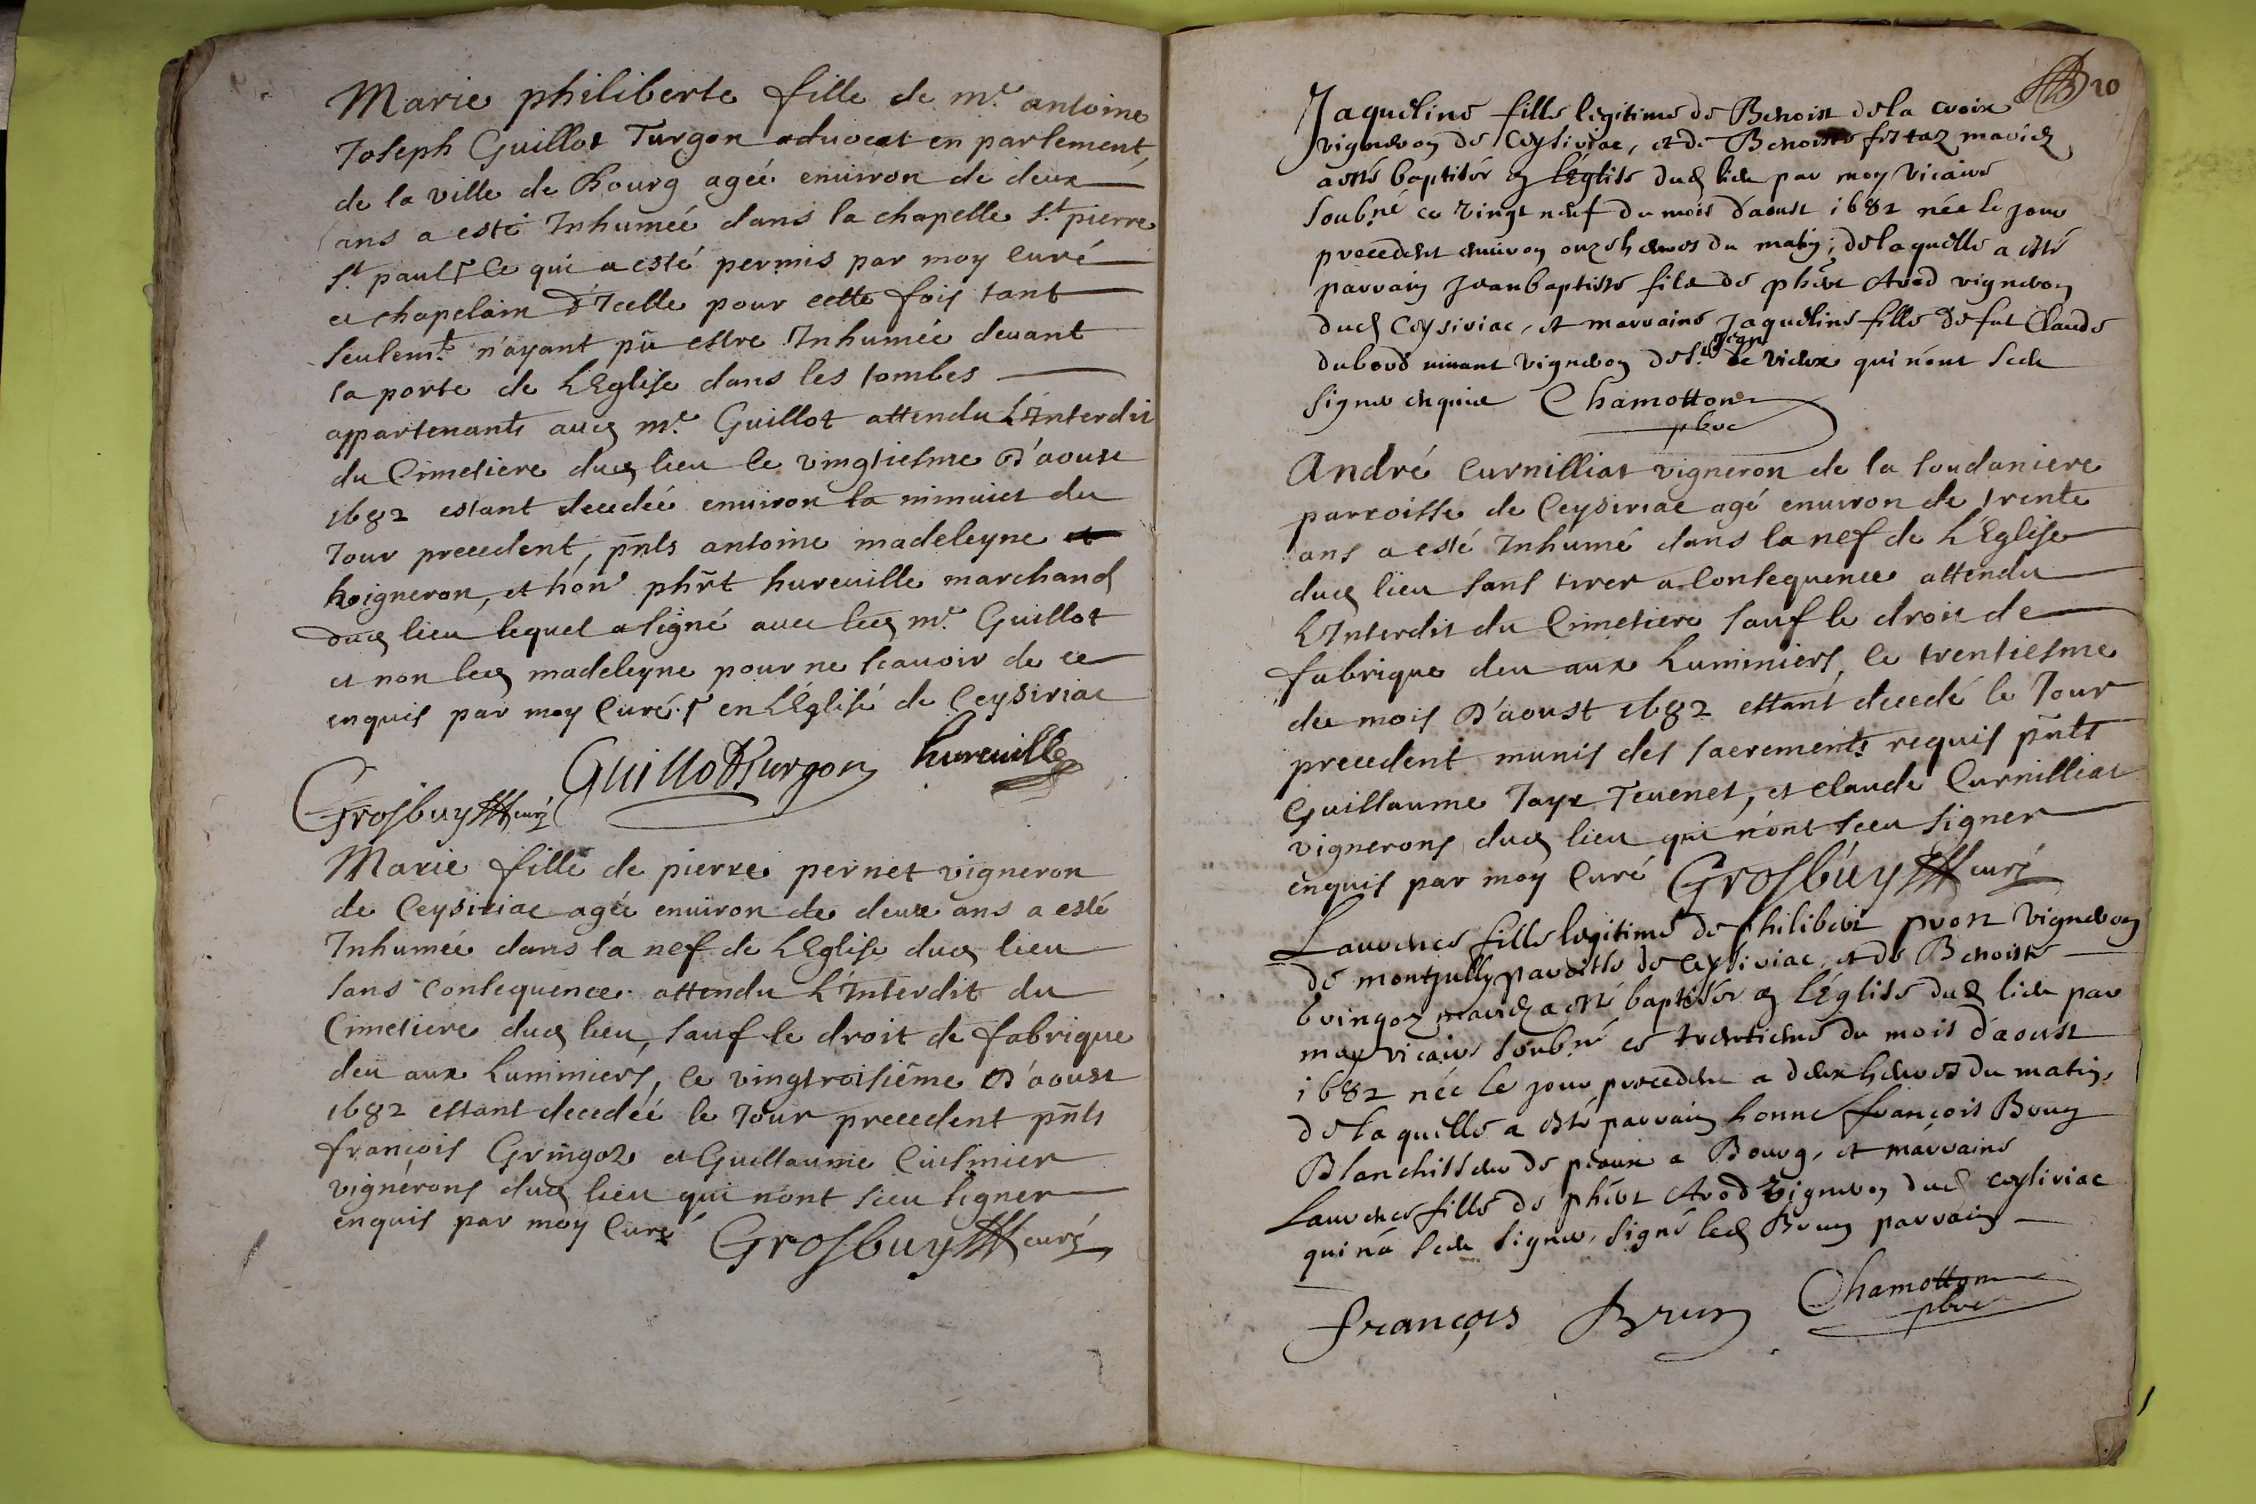 Marie philiberte fille de mr. antoine
Joseph Guillot Turgon advocat en parlement,
de la ville de Bourg ageé environ de deux
ans a esté Inhumeé dans la chapelle st. pierre
st. paul ce qui a esté permis par moy curé
et chapelain d'Icelle pour cette fois tant
seulemt. n'ayant pû estre Inhumée devant
la porte de L'Eglise dans les tombes
appartenants aud mr. Guillot attendu L'Interdit
du Cimetiere dud lieu le vingtiesme d'aoust
1682 estant decedeé environ la minuict du
Jour precedent, pñts antoine madeleyne
vigneron, et hon phrt hureville marchand
dud lieu lequel a signé avec led mr. Guillot
et non led madeleyne pour ne scavoir de ce
enquis par moy Curé. en L'Église de Ceysiriac
Guillot Turgon hureville
Grosbuy curé
Marie fille de pierre pernet vigneron
de Ceysiriac agée environ de deux ans a esté
Inhumeé dans la nef de L'Eglise dud lieu
sans consequence attendu L'Interdit du
Cimetiere dud lieu, sauf le droit de fabrique
deu aux Luminiers, le vingtroisiéme d'aoust
1682 estant decedéé le Jour precedent pñts
françois Gringoz et Guillaume Cuisinier
vignérons dud lieu qui n'ont sceu signer
enquis par moy Curé Grosbuy curé
20
Jaqueline fille legitime de Benoist dela croix
vigneron de Ceysiriac, et de Benoiste mariez
a esté baptisée en l'Église dud lieu par moy vicaire
soubné ce vingt neuf du mois d'aoust 1682 née le jour
precedent environ onze heures du matin; de laquelle a esté
parrain Jean baptiste fils de phbert Arod vigneron
dud Ceysiriac, et marraine Jaqueline fille de fut Claude
dubord vivant vigneron de st. Jean le vieux qui n'ont sceu
signer enquis Chamotton
pbre
André Curnilliat vigneron de la soudaniere
parroisse de Ceysiriac agé environ de trente
ans a esté Inhumé dans la nef de L'Eglise
dud lieu sans tirer a consequence attendu
L'Interdit du Cimetiere sauf le droit de
fabrique deu aux Luminiers, le trentiesme
du mois d'aoust 1682 estant decedé le Jour
precedent munis des sacrements requis pñts
Guillaume Jayr Tevenet, et claude Curnilliat
vignerons dud lieu qui n'ont sceu signer
enquis par moy Curé Grosbuy curé
Laurence fille legitime de philibert pron vigneron
de montjully paroisse de Ceysiriac, et de Benoiste
bringoz mariez a esté baptisée en l'Église dud lieu par
moy vicaire soubné ce trentieme du mois d'aoust
1682 née le jour precedent a deux heures du matin,
de laquelle a esté parrain honne françois Brun
Blanchisseur de peaux a Bourg, et marraine
Laurence fille de phbert Arod vigneron dud Ceysiriac
qui n'a sceu signer, signé led Brun parrain
françois Brun Chamotton
pbre